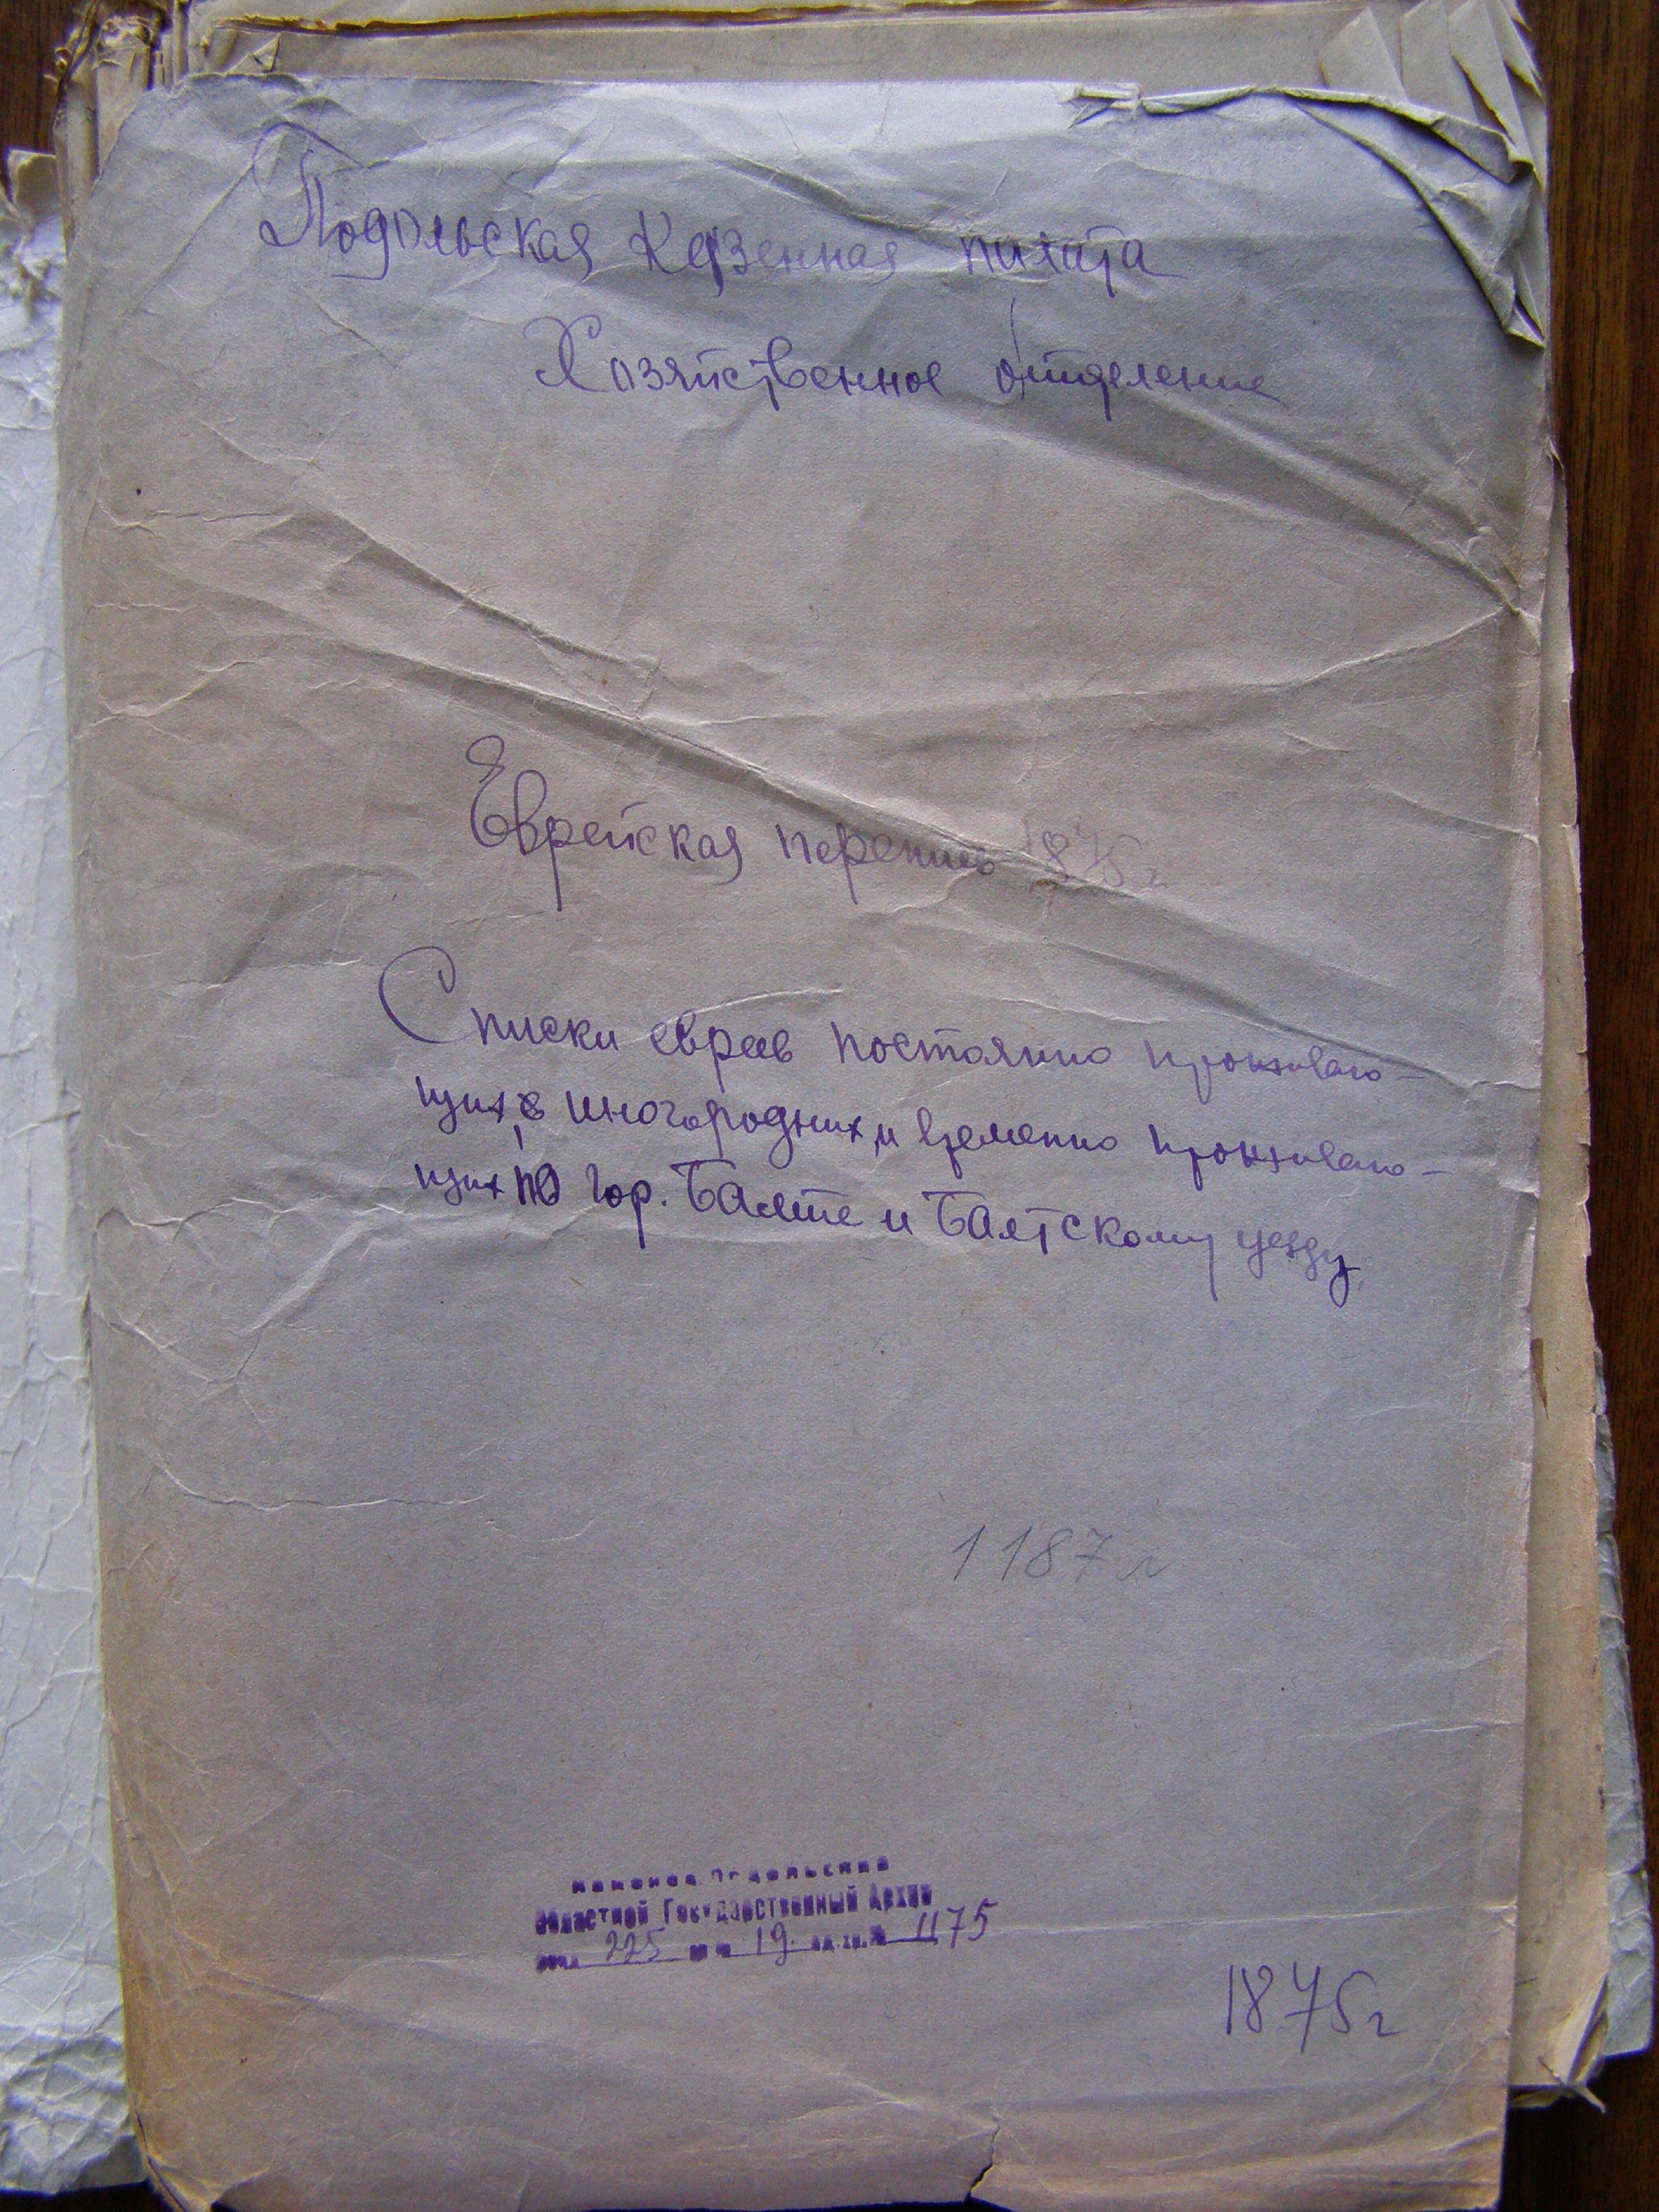 Подольская Казенная палата
Хозяйственное отделение
Еврейская перепись 1875 г
Списки евреев постоянно проживаю-
щих, иногородних и временно проживаю-
щих по гор. Балте и Балтскому уезду
1187 л
Каменец Подольский
Областной Государственный Архив
фонд 225 оп № 19 ед.хр.№ 1175
1875 г